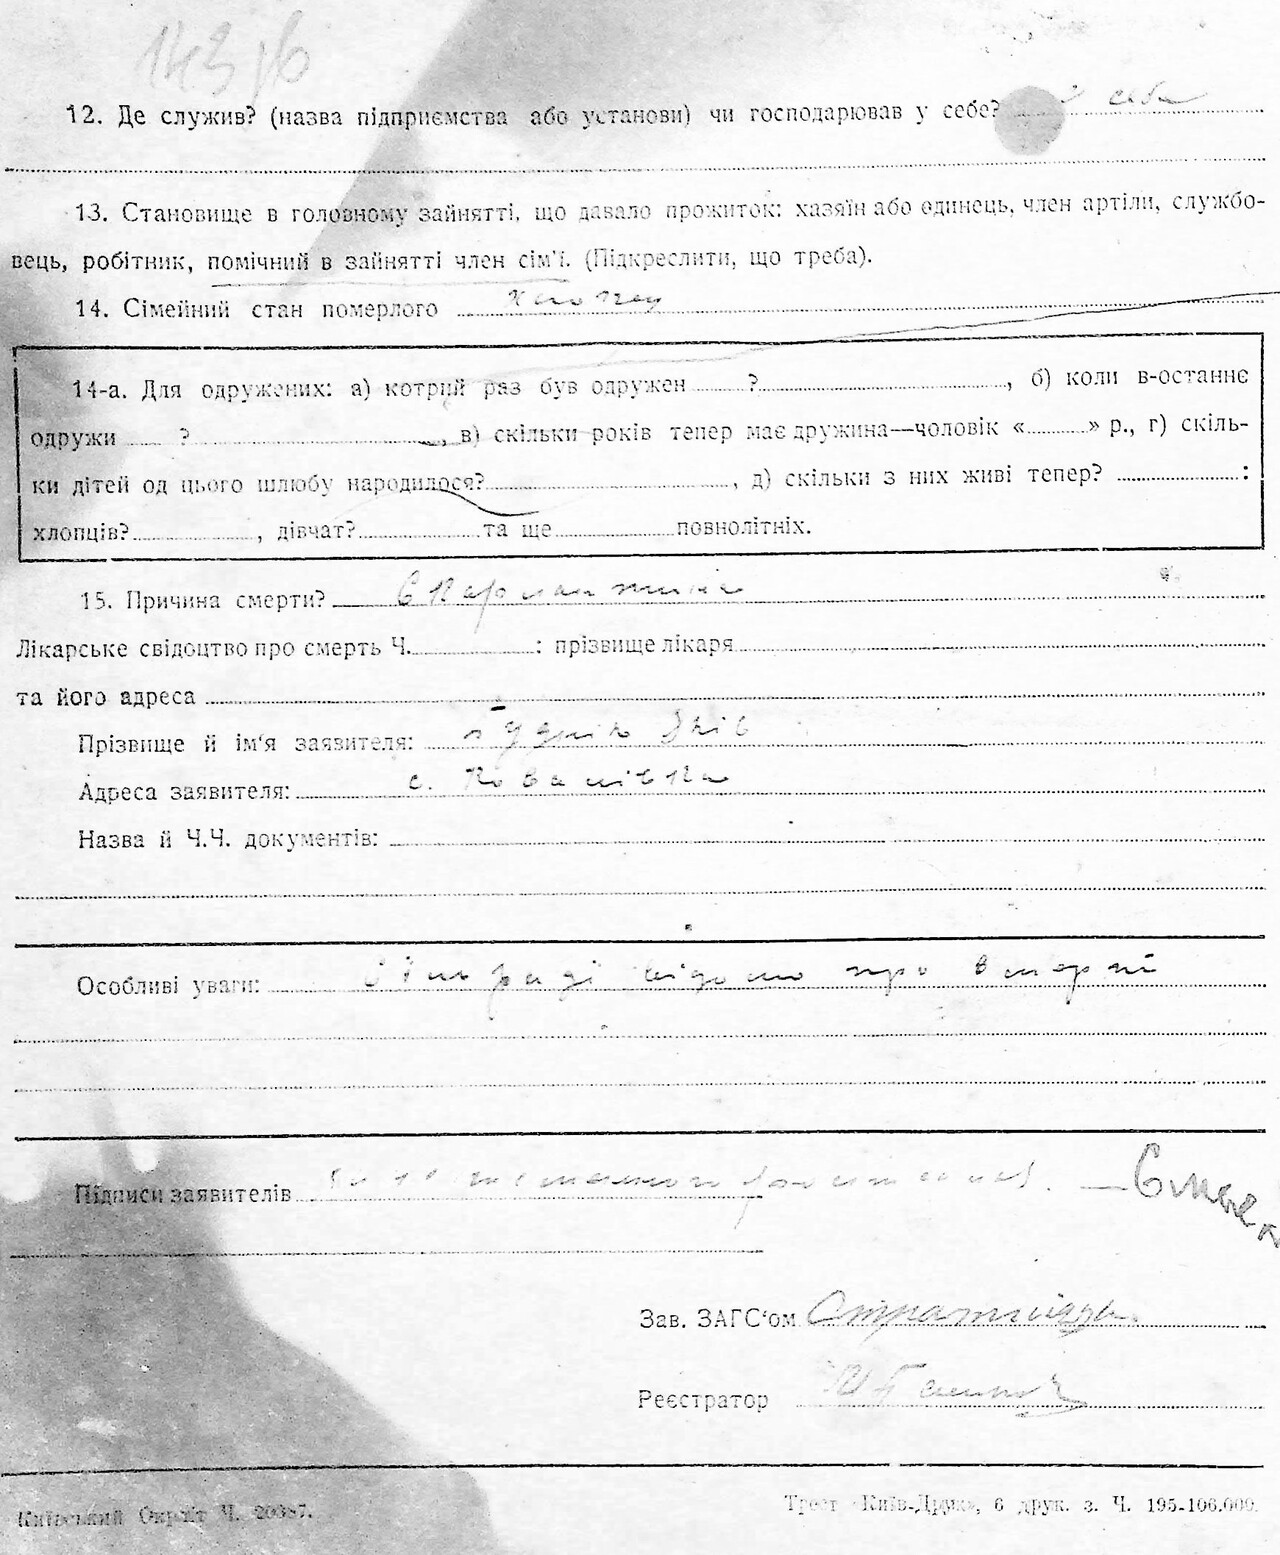 12. Де служив? (назва підприємства або установи) чи господарював у себе? у себе
13. Становище в головному зайнятті, що давало прожиток: хазяїн або одинець, член артіли, службо-
вець, робітник, помічний в зайнятті член сім'ї. (Підкреслити, що треба).
14. Сімейний стан померлого
14-а. Для одружених: а) котрий раз був одружен ?, б) коли в-останнє
одружи ?, в) скільки років тепер має дружина—чоловік « » р., г) скіль-
ки дітей од цього шлюбу народилося?, д) скільки з них живі тепер? :
хлопців?, дівчат? та ще повнолітніх.
15. Причина смерти? Скарлатина
Лікарське свідоцтво про смерть Ч. : прізвище лікаря
та його адреса
Прізвище й ім'я заявителя:
Адреса заявителя: с. Ковалівка
Назва й Ч.Ч. документів:
Особливі уваги: про
Підписи заявителів
Зав. ЗАГС'ом
Реєстратор
Київський Окрліт Ч. 20387.
Трест «Київ-Друк», 6 друк. з. Ч. 195-106.000.